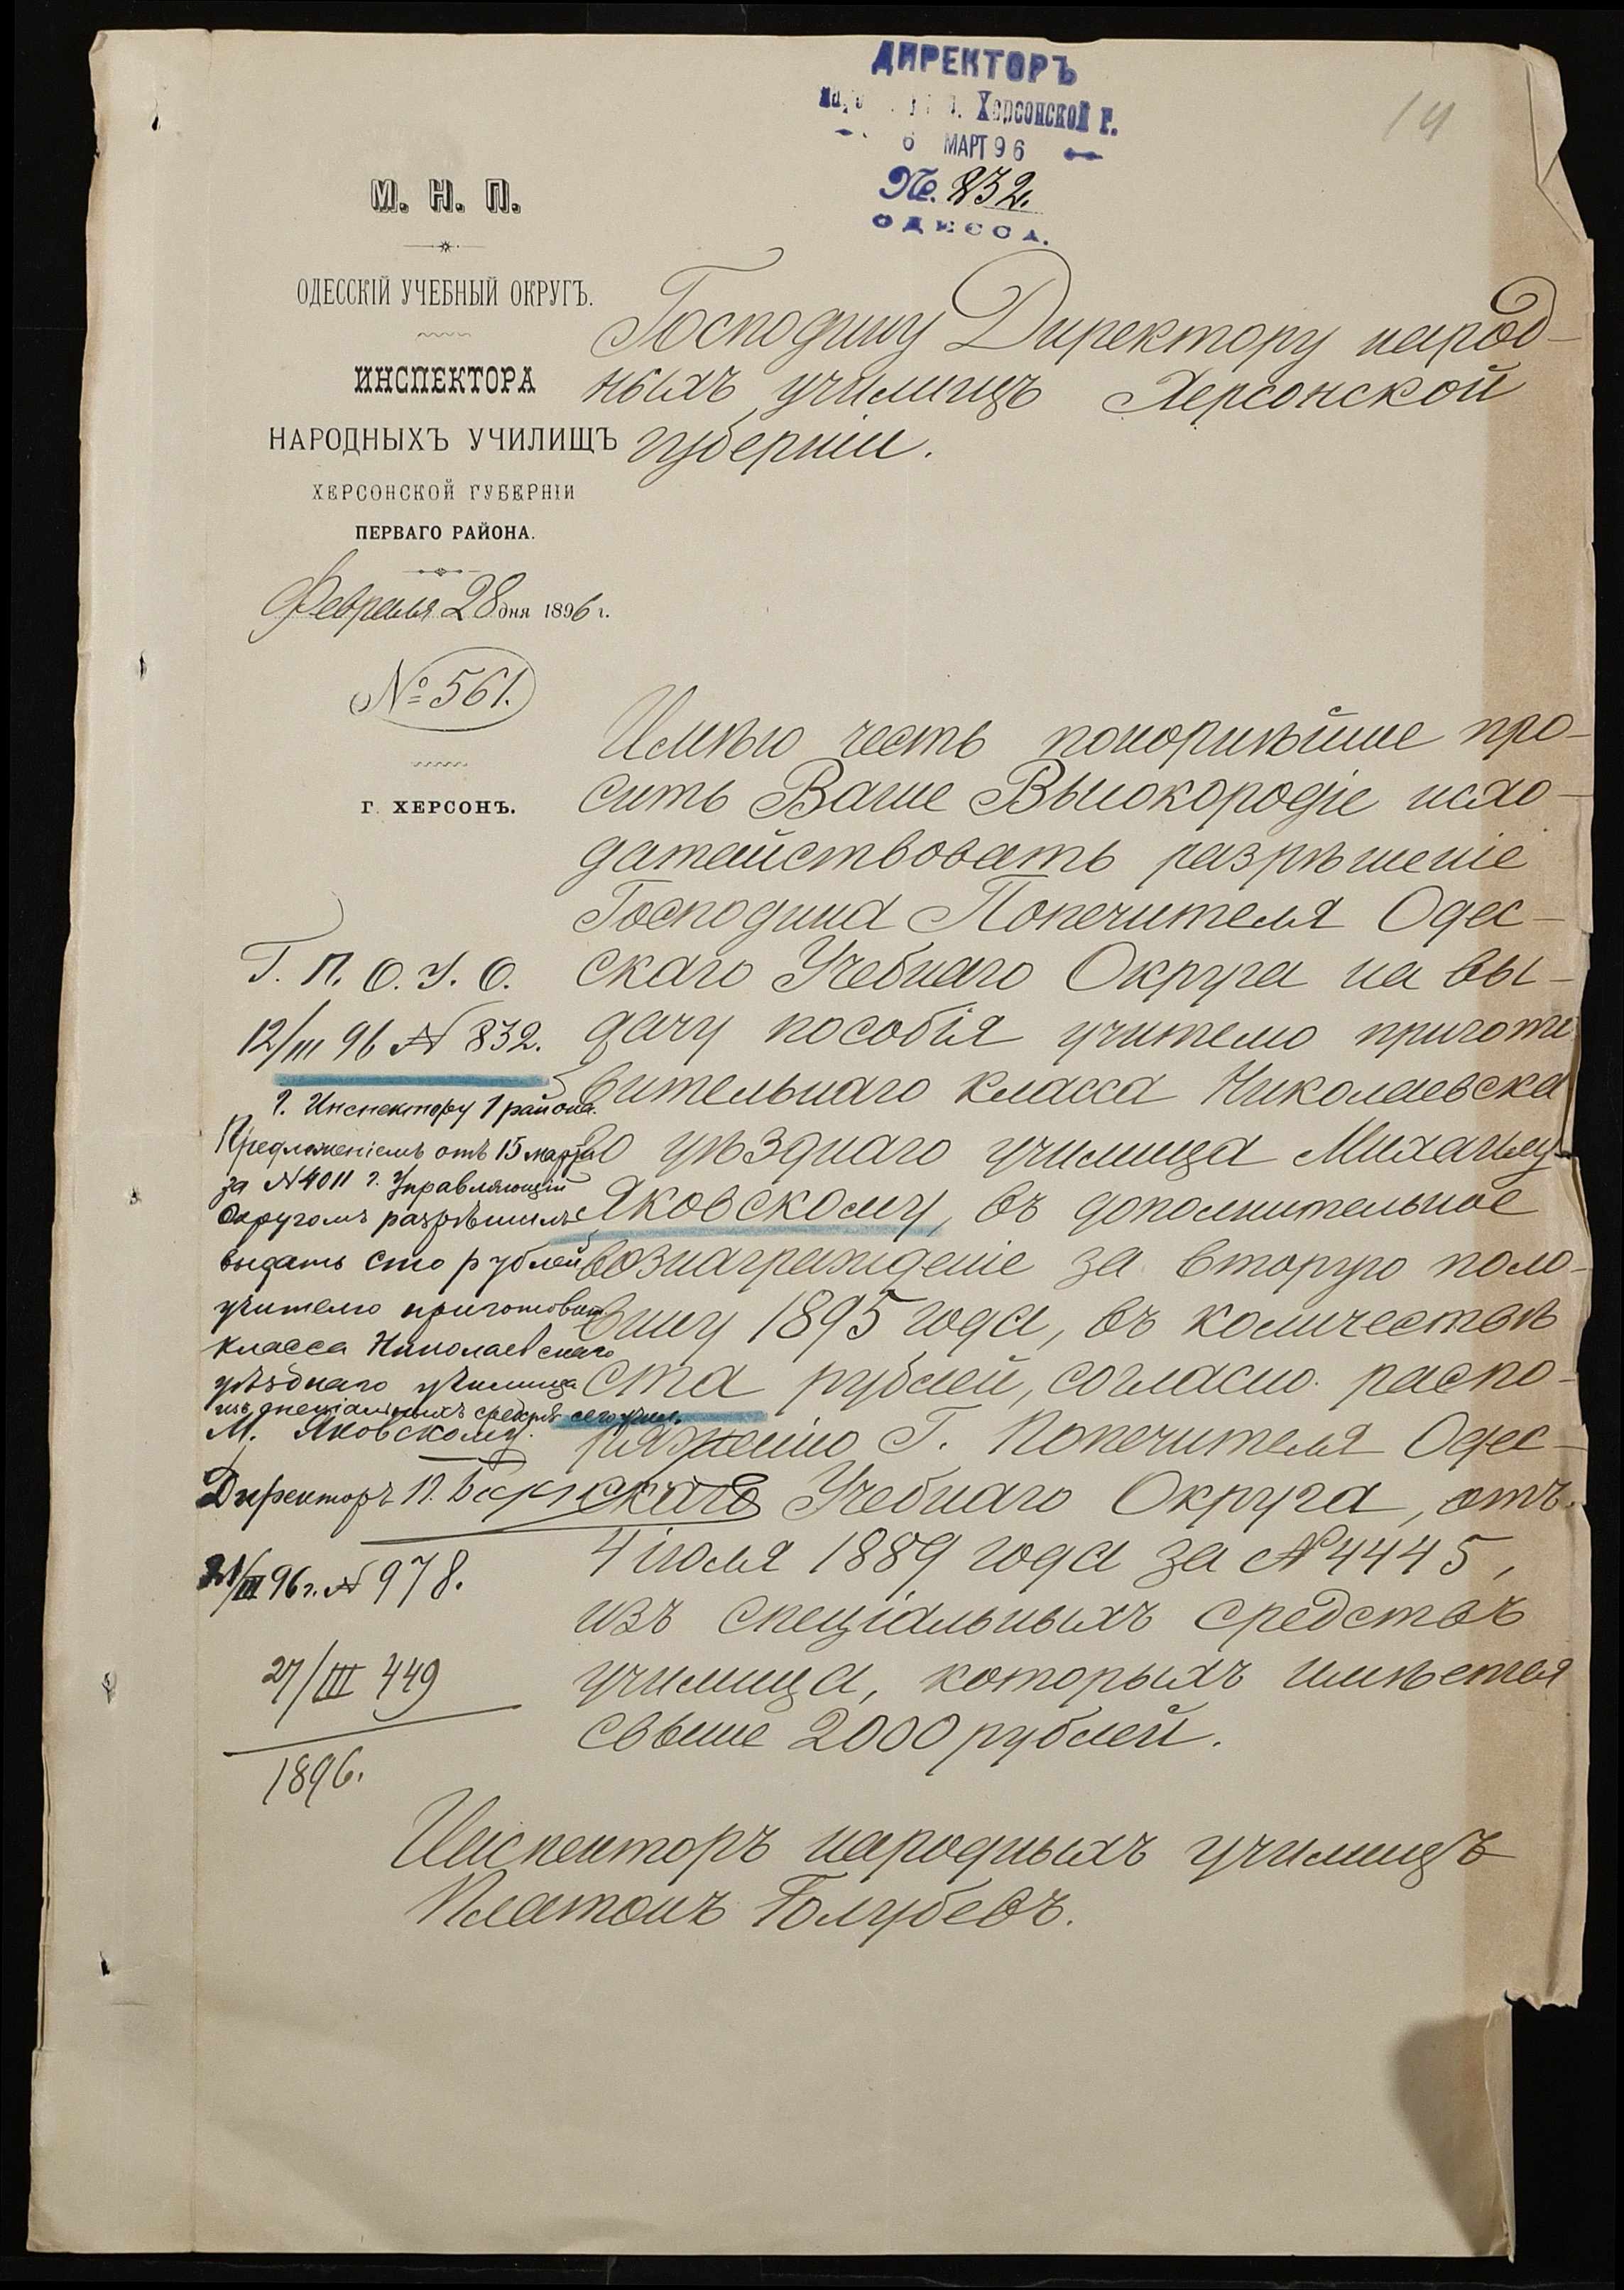 ДИРЕКТОРЪ
Херсонской г.
6 МАРТ 96
№. 832.
ОДЕССА.
14
М. Н. П.
ОДЕССКІЙ УЧЕБНЫЙ ОКРУГЪ.
ИНСПЕКТОРА
НАРОДНЫХЪ УЧИЛИЩЪ
ХЕРСОНСКОЙ ГУБЕРНІИ
ПЕРВАГО РАЙОНА.
Февраля 28 дня 1896 г.
№ 561.
Г. ХЕРСОНЪ.
Господину Директору народ-
ныхъ училищъ Херсонской
губерніи.
Имѣю честь покорнѣйше про-
сить Ваше Высокородіе исхо-
датайствовать разрѣшеніе
Господина Попечителя Одес-
скаго Учебнаго Округа на вы-
дачу пособія учителю пригото
вительнаго класса Николаевска
го уѣзднаго училища Михаилу
Яковскому, въ дополнительное
вознагражденіе за вторую поло-
вину 1895 года, въ количествѣ
ста рублей, согласно распо-
ряженію Г. Попечителя Одес-
скаго Учебнаго Округа, отъ
4 іюля 1889 года за № 4445,
изъ спеціальныхъ средствъ
училища, которыхъ имѣется
свыше 2000 рублей.
Инспекторъ народныхъ училищъ
Платонъ Голубевъ.
Г. П. О. У. О.
12/III 96 № 832.
Г. Инспектору 1 района.
Предложеніемъ отъ 15 марта
за № 4011 г. Управляющій
Округомъ разрѣшилъ
выдать сто рублей
учителю приготовит
класса Николаевскаго
уѣзднаго училища
изъ спеціальныхъ средствъ сего учил.
М. Яковскому.
Директоръ П.
21/III 96 г. № 978.
27/III 449
1896.